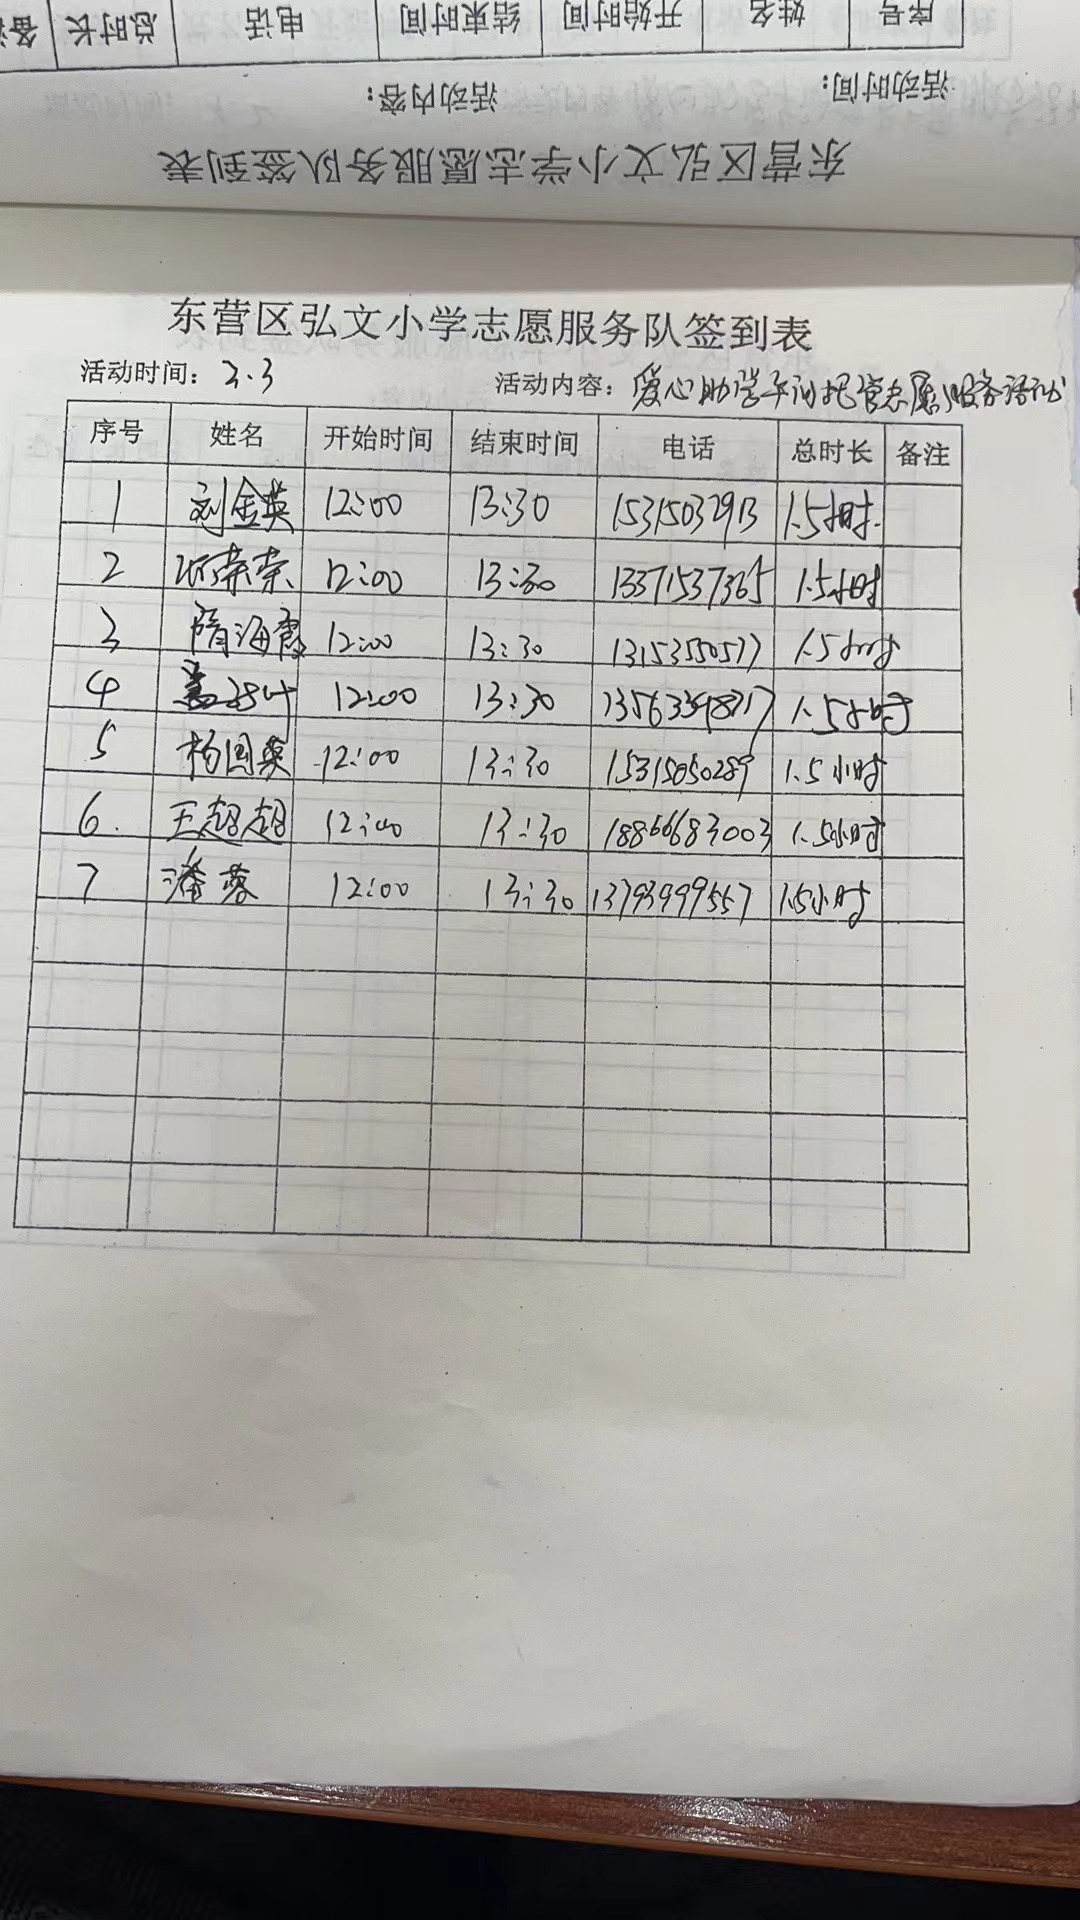 序号 姓名 开始时间 结束时间 电话 总时长 备注
活动时间: 活动内容:
东营区弘文小学志愿服务队签到表
东营区弘文小学志愿服务队签到表
活动时间: 3.3 活动内容: 爱心助学午间托管志愿服务活动
序号 姓名 开始时间 结束时间 电话 总时长 备注
1 刘金英 12:00 13:30 15315032913 1.5小时.
2 荣荣 12:00 13:30 13371537365 1.5小时
3 隋海霞 12:00 13:30 13153550577 1.5小时
4 12:00 13:30 1.5小时
5 杨国英 12:00 13:30 15315050289 1.5小时
6. 王超超 12:00 13:30 18866683003 1.5小时
7 潘蓉 12:00 13:30 13793999557 1.5小时